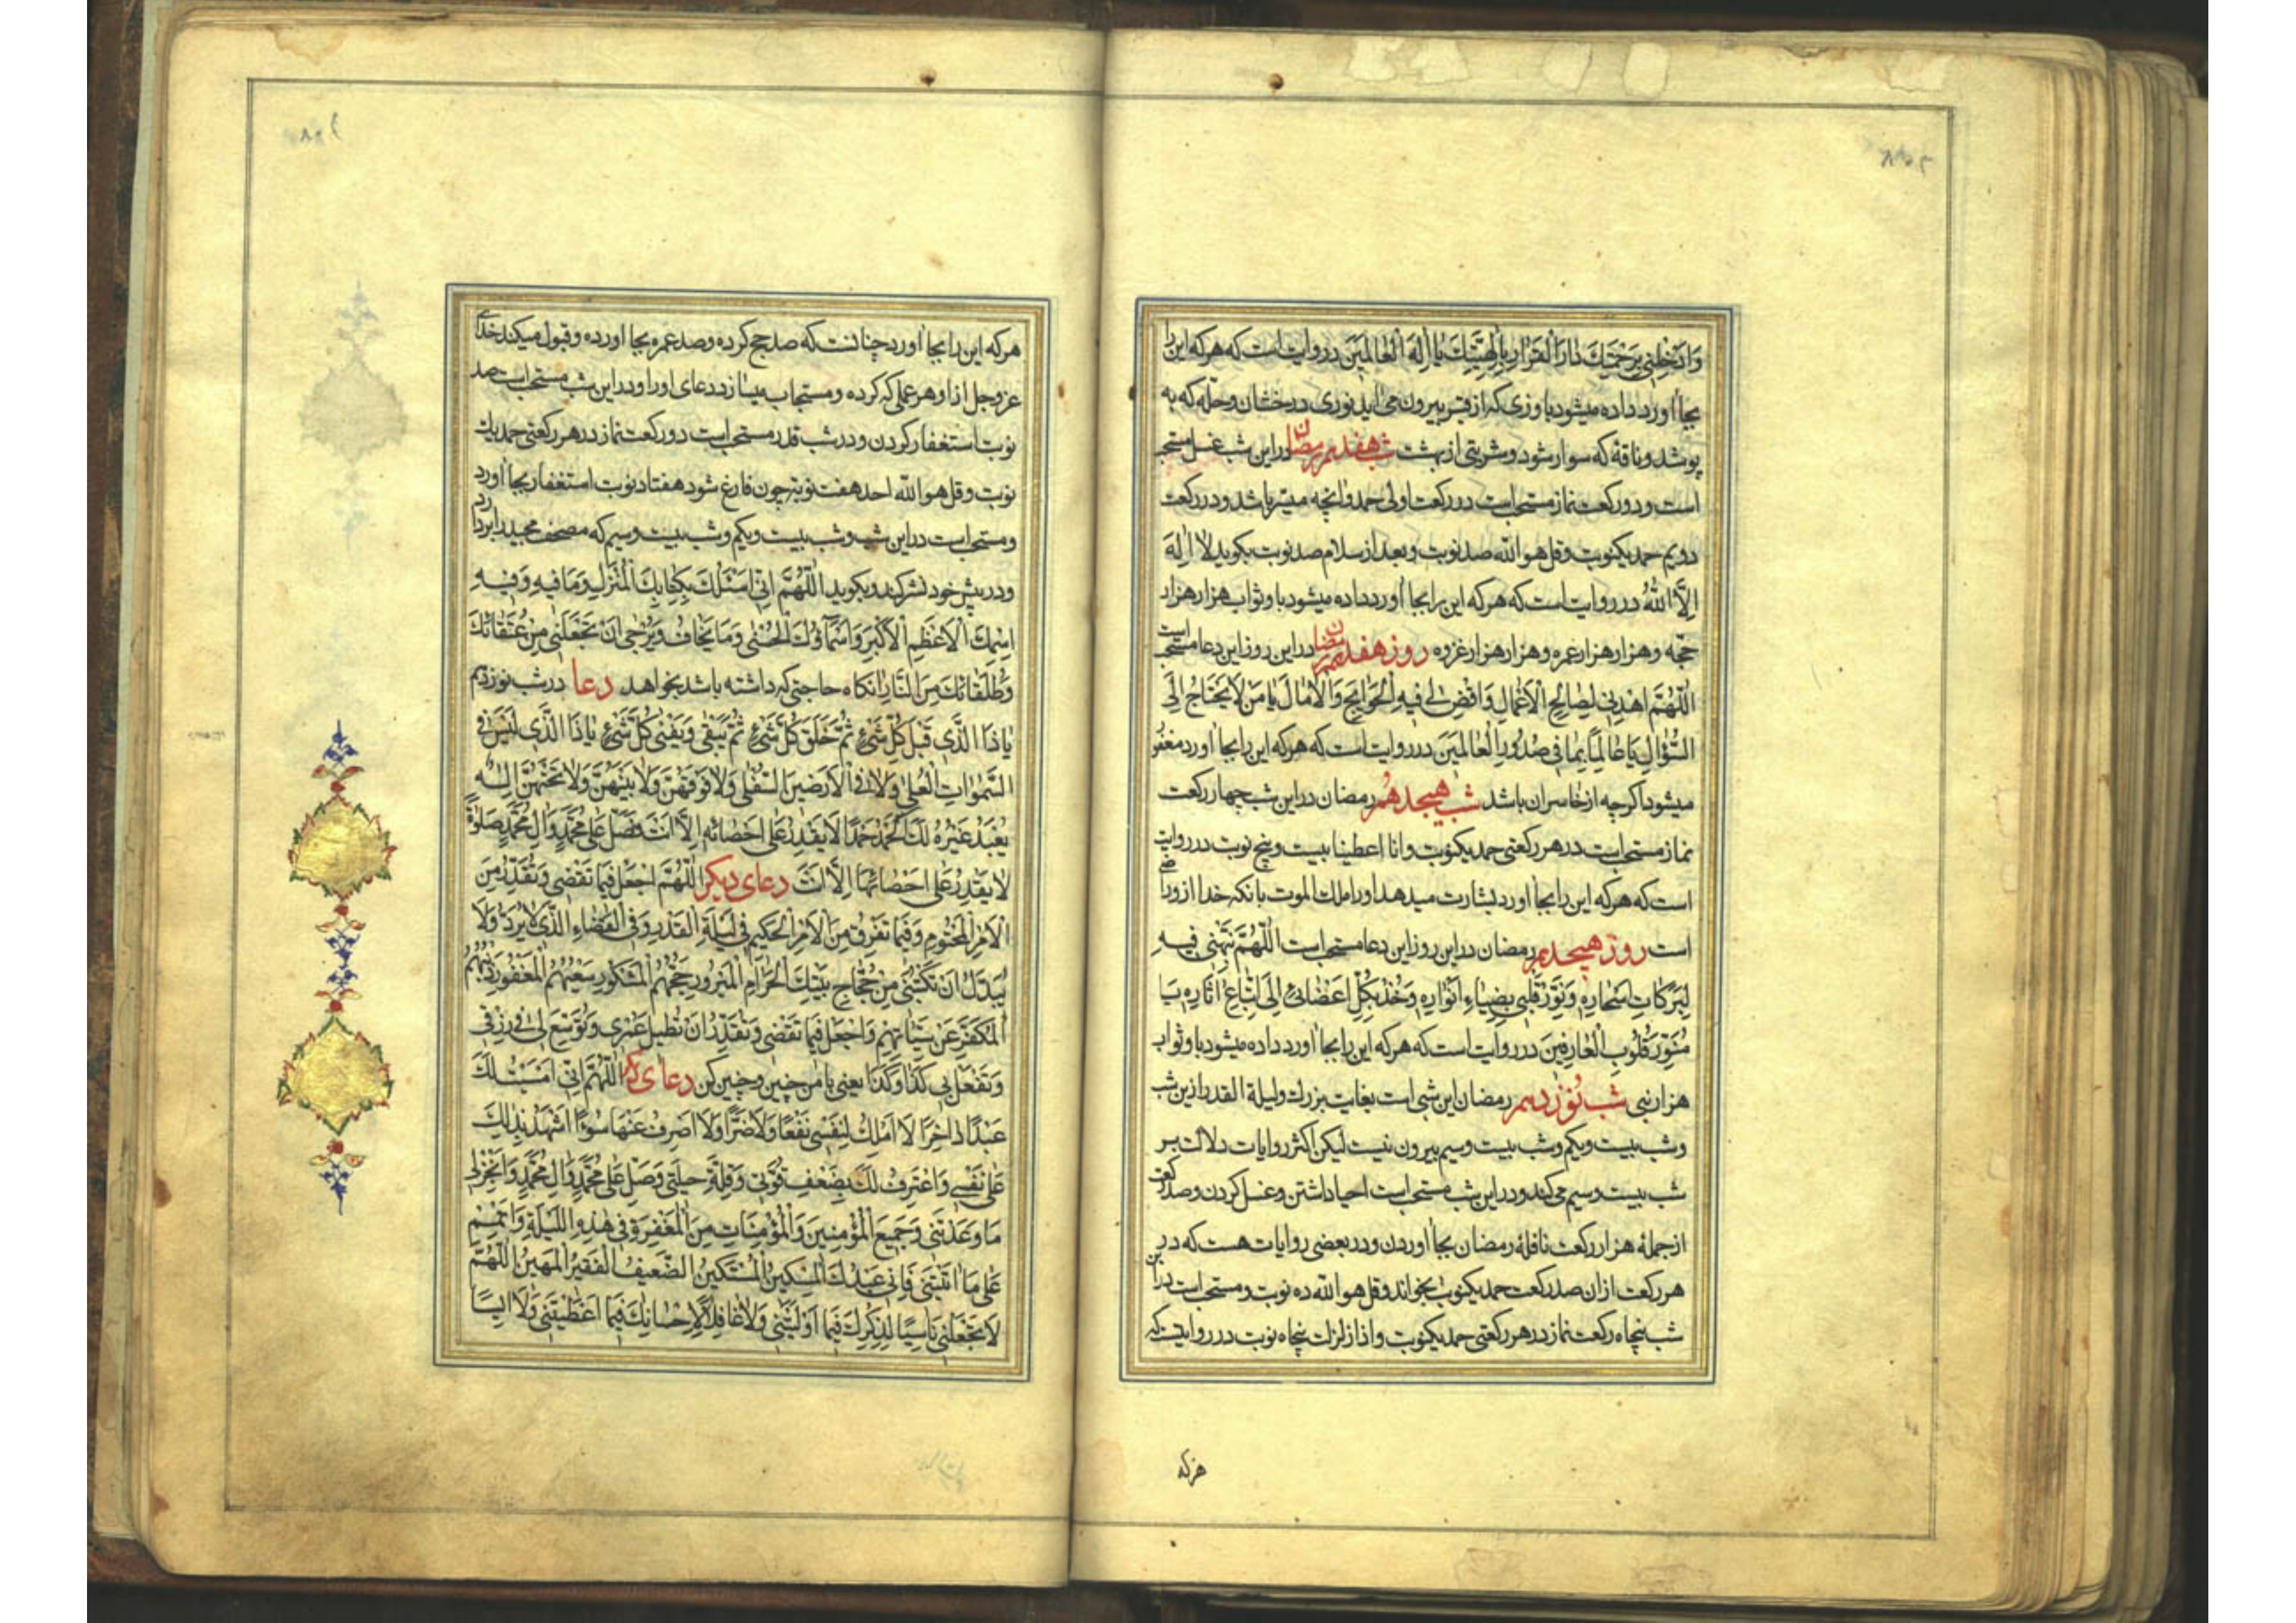 وَاَدْخِلْنِی بِرَحْمَتِكَ دَارَ الْقَرَارِ بِاِلٰهِیَّتِكَ یَا اِلٰهَ الْعَالَمِینَ در روایت است که هرکه این را
بجا آورد داده میشود باو زی که از قبر بیرون می آید نوری درخشان و حله که به
پوشد و ناقۀ که سوار شود و شربتی از بهشت شب هفدهم رمضان در این شب غسل مستحب
است و دو رکعت نماز مستحب است در رکعت اولی حمد و آنچه میسّر باشد و در رکعت
دویم حمد یکنوبت و قل هو الله صد نوبت و بعد از سلام صد نوبت بکوید لَا اِلٰهَ
اِلَّا اللّٰهُ در روایت است که هرکه این را بجا آورد داده میشود باو ثواب هزار هزار
حجّه و هزار هزار عمره و هزار هزار غزوه روز هفدهم رمضان در این روز این دعا مستحب است
اَللّٰهُمَّ اهْدِنِی لِصَالِحِ الْاَعْمَالِ وَاقْضِ لِی فِیهِ الْحَوَایِجَ وَالْاٰمَالَ یَا مَنْ لَا یَحْتَاجُ اِلَی
السُّؤٰالِ یَا عَالِمًا بِمَا فِی صُدُورِ الْعَالَمِینَ در روایت است که هرکه این را بجا آورد مغفور
میشود اکرچه از خاسران باشد شب هیجدهم رمضان در این شب چهار رکعت
نماز مستحب است در هر رکعتی حمد یکنوبت و انا اعطینا بیست و پنج نوبت در روایت
است که هرکه این را بجا آورد بشارت میدهد او را ملك الموت بانکه خدا ازو راضی
است روز هیجدهم رمضان در این روز این دعا مستحب است اَللّٰهُمَّ نَبِّهْنِی فِیهِ
لِبَرَكَاتِ اَسْحَارِهِ وَنَوِّرْ قَلْبِی بِضِیَاءِ اَنْوَارِهِ وَخُذْ بِكُلِّ اَعْضَائِی اِلَی اتِّبَاعِ اٰثَارِهِ یَا
مُنَوِّرَ قُلُوبِ الْعَارِفِینَ در روایت است که هرکه این را بجا آورد داده میشود باو ثواب
هزار نبی شب نوزدهم رمضان این شبی است بغایت بزرك و لیلة القدر ازین شب
و شب بیست و یکم و شب بیست و سیم بیرون نیست لیکن اکثر روایات دلالت بر
شب بیست و سیم می کند و در این شب مستحب است احیا داشتن و غسل کردن و صد رکعت
از جملۀ هزار رکعت نافلۀ رمضان بجا آوردن و در بعضی روایات هست که در
هر رکعت از ان صد رکعت حمد یکنوبت بخواند و قل هو الله ده نوبت و مستحب است در این
شب پنجاه رکعت نماز در هر رکعتی حمد یکنوبت و اذا زلزلت پنجاه نوبت در روایتست که
هرکه
هرکه این را بجا آورد چنانست که صد حج کرده و صد عمره بجا آورده و قبول میکند خدای
عزوجل ازاو هر عملی که کرده و مستجاب میسازد دعای اورا و در این شب مستحب است صد
نوبت استغفار کردن و در شب قدر مستحب است دو رکعت نماز در هر رکعتی حمد یك
نوبت و قل هو الله احد هفت نوبت چون فارغ شود هفتاد نوبت استغفار بجا آورد
و مستحب است در این شب و شب بیست و یکم و شب بیست و سیم که مصحف مجید را بردارد
و در پیش خود نشر کند و بکوید اَللّٰهُمَّ اِنِّی اَسْئَلُكَ بِكِتَابِكَ الْمُنْزَلِ وَمَا فِیهِ وَفِیهِ
اِسْمُكَ الْاَعْظَمُ الْاَكْبَرُ وَاَسْمَاؤُكَ الْحُسْنٰی وَمَا یُخَافُ وَیُرْجٰی اَنْ تَجْعَلَنِی مِنْ عُتَقَائِكَ
وَطُلَقَائِكَ مِنَ النَّارِ انکاه حاجتی که داشته باشد بخواهد دعا در شب نوزدهم
یَا ذَا الَّذِی قَبْلَ كُلِّ شَیْءٍ ثُمَّ خَلَقَ كُلَّ شَیْءٍ ثُمَّ یَبْقٰی وَیَفْنٰی كُلُّ شَیْءٍ یَا ذَا الَّذِی لَیْسَ فِی
السَّمٰوَاتِ الْعُلٰی وَلَا فِی الْاَرَضِینَ السُّفْلٰی وَلَا فَوْقَهُنَّ وَلَا بَیْنَهُنَّ وَلَا تَحْتَهُنَّ اِلٰهٌ
یُعْبَدُ غَیْرُهُ لَكَ الْحَمْدُ حَمْدًا لَا یَقْدِرُ عَلٰی اِحْصَائِهِ اِلَّا اَنْتَ فَصَلِّ عَلٰی مُحَمَّدٍ وَاٰلِ مُحَمَّدٍ صَلٰوةً
لَا یَقْدِرُ عَلٰی اِحْصَائِهَا اِلَّا اَنْتَ دعای دیکر اَللّٰهُمَّ اجْعَلْ فِیمَا تَقْضِی وَتُقَدِّرُ مِنَ
الْاَمْرِ الْمَحْتُومِ وَفِیمَا تَفْرُقُ مِنَ الْاَمْرِ الْحَكِیمِ فِی لَیْلَةِ الْقَدْرِ وَفِی الْقَضَاءِ الَّذِی لَا یُرَدُّ وَلَا
یُبَدَّلُ اَنْ تَكْتُبَنِی مِنْ حُجَّاجِ بَیْتِكَ الْحَرَامِ الْمَبْرُورِ حَجُّهُمُ الْمَشْكُورِ سَعْیُهُمُ الْمَغْفُورِ ذُنُوبُهُمُ
الْمُكَفَّرِ عَنْ سَیِّئَاتِهِمْ وَاجْعَلْ فِیمَا تَقْضِی وَتُقَدِّرُ اَنْ تُطِیلَ عُمْرِی وَتُوَسِّعَ لِی فِی رِزْقِی
وَتَفْعَلَ بِی كَذَا وَكَذَا یعنی با من چنین و چنین کن دعای دیکر اَللّٰهُمَّ اِنِّی اَمْسَیْتُ لَكَ
عَبْدًا دَاخِرًا لَا اَمْلِكُ لِنَفْسِی نَفْعًا وَلَا ضَرًّا وَلَا اَصْرِفُ عَنْهَا سُوءًا اَشْهَدُ بِذٰلِكَ
عَلٰی نَفْسِی وَاَعْتَرِفُ لَكَ بِضَعْفِ قُوَّتِی وَقِلَّةِ حِیلَتِی وَصَلِّ عَلٰی مُحَمَّدٍ وَاٰلِ مُحَمَّدٍ وَاَنْجِزْ لِی
مَا وَعَدْتَنِی وَجَمِیعَ الْمُؤْمِنِینَ وَالْمُؤْمِنَاتِ مِنَ الْمَغْفِرَةِ فِی هٰذِهِ اللَّیْلَةِ وَاَتْمِمْ
عَلَیَّ مَا اٰتَیْتَنِی فَاِنِّی عَبْدُكَ الْمِسْكِینُ الْمُسْتَكِینُ الضَّعِیفُ الْفَقِیرُ الْمَهِینُ اَللّٰهُمَّ
لَا تَجْعَلْنِی نَاسِیًا لِذِكْرِكَ فِیمَا اَوْلَیْتَنِی وَلَا غَافِلًا لِاِحْسَانِكَ فِیمَا اَعْطَیْتَنِی وَلَا اٰیِسًا